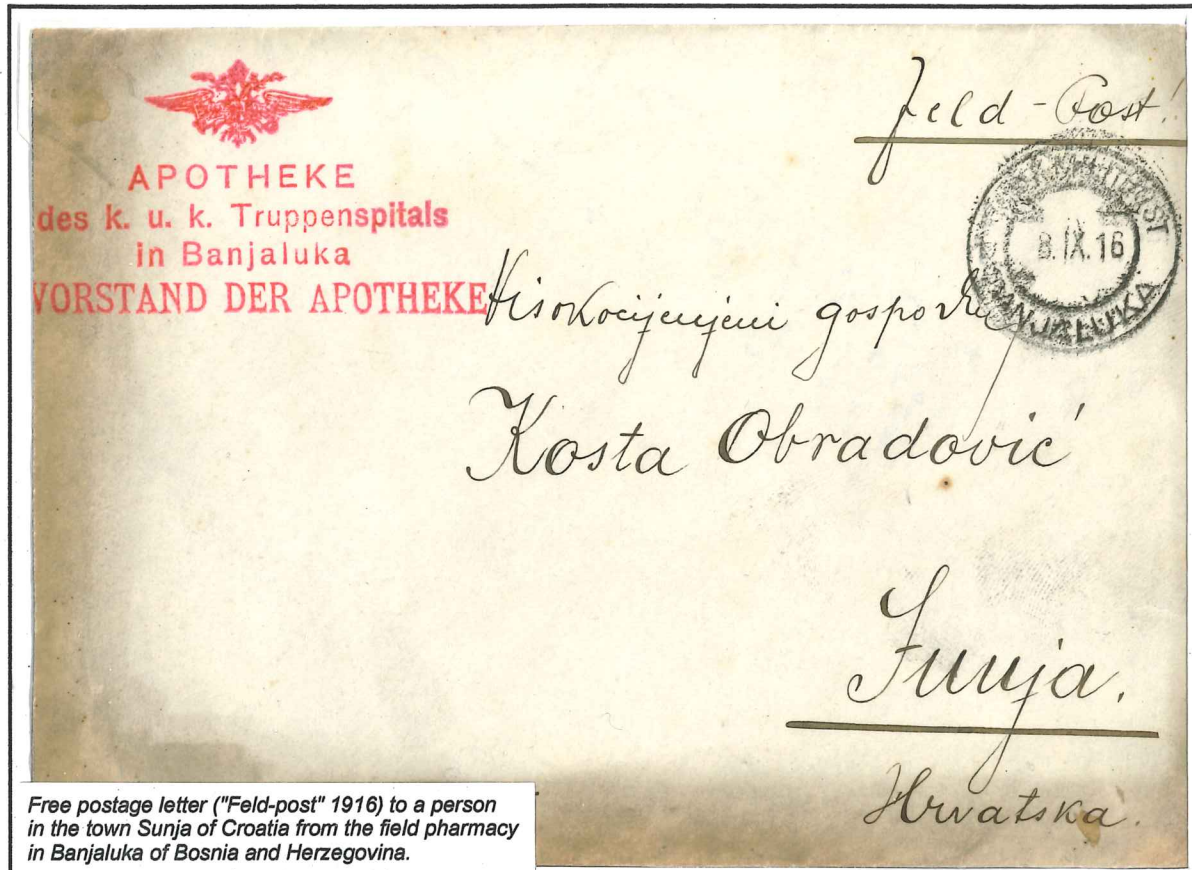 Feld-Post!
APOTHEKE
des k. u. k. Truppenspitals
in Banjaluka
VORSTAND DER APOTHEKE
K.u.K. MILIT. POST
8.IX.16
BANJALUKA
Visokocijenjeni gospodin
Kosta Obradović
Sunja.
Hrvatska.
Free postage letter ("Feld-post" 1916) to a person
in the town Sunja of Croatia from the field pharmacy
in Banjaluka of Bosnia and Herzegovina.